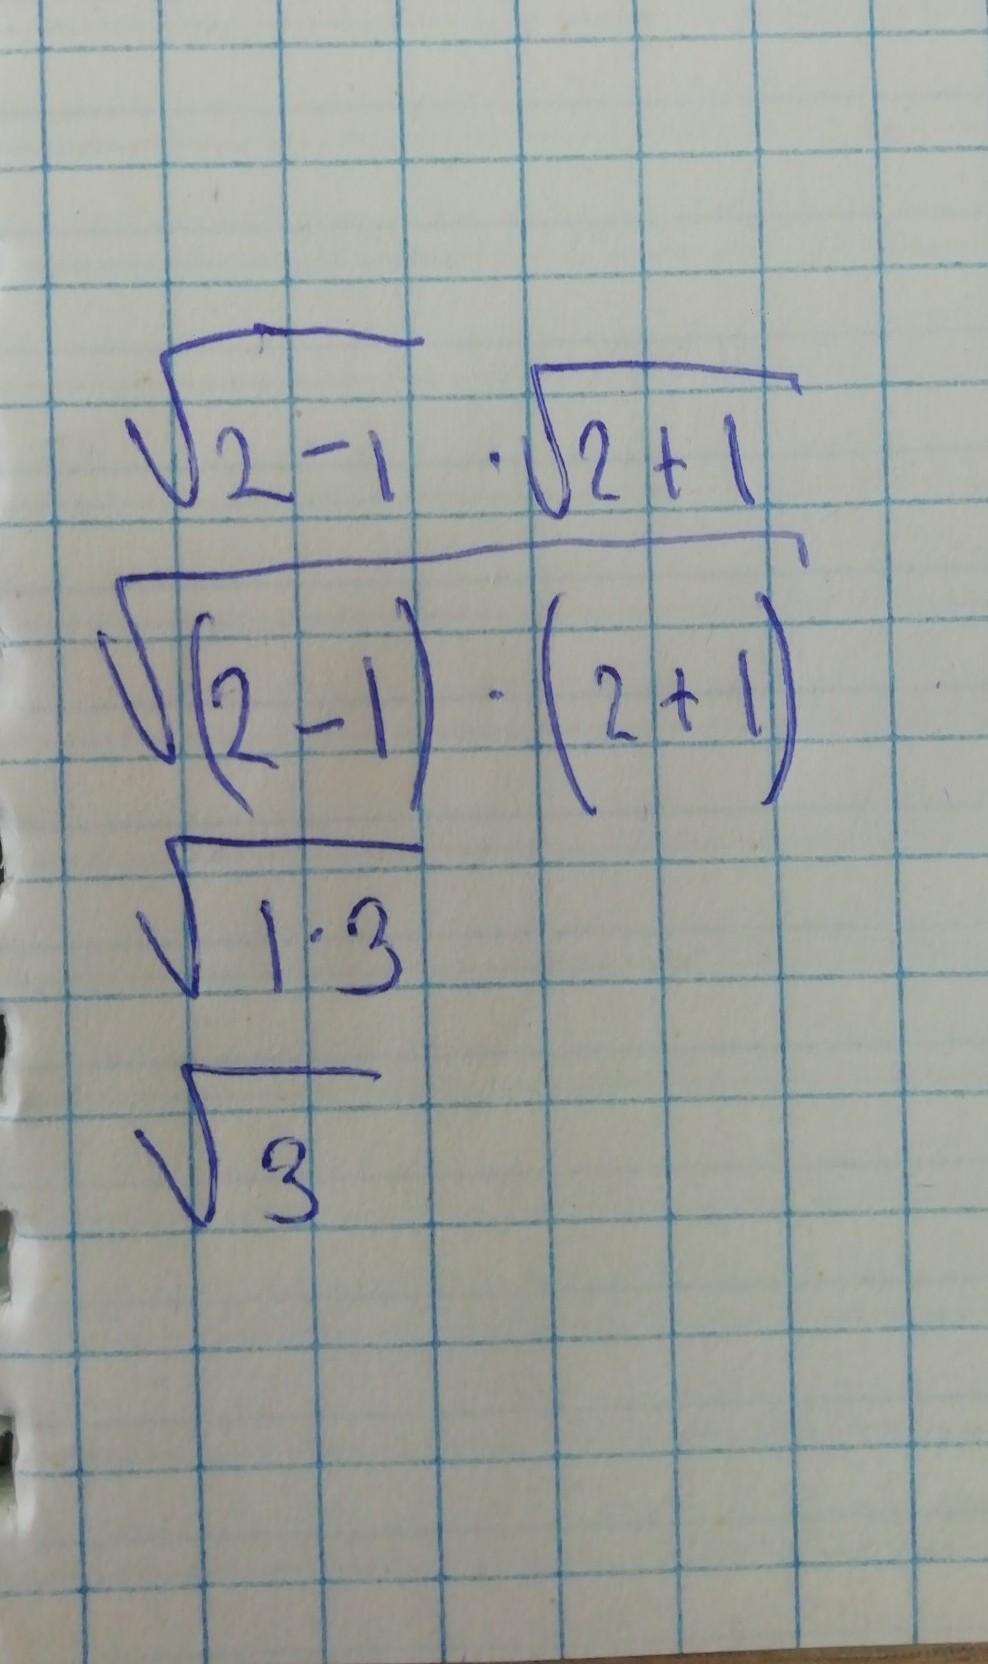 √(2-1) · √(2+1)
√((2-1) · (2+1))
√(1·3)
√3